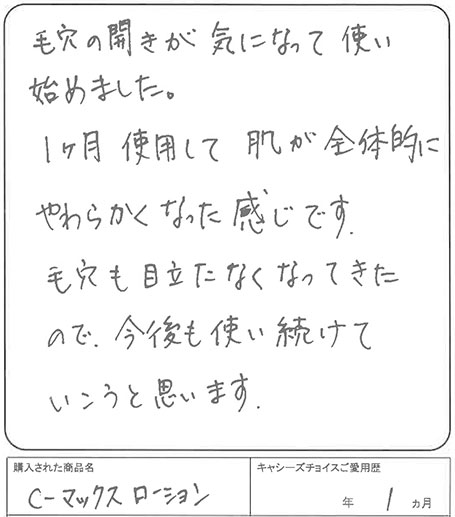 毛穴の開きが 気になって 使い
始めました。
1ヶ月 使用して 肌が 全体的に
やわらかく なった 感じです.
毛穴も目立たなくなってきた
ので. 今後も使い続けて
いこうと思います.
購入された商品名
キャシーズチョイスご愛用歴
C-マックス ローション
年 1 ヵ月